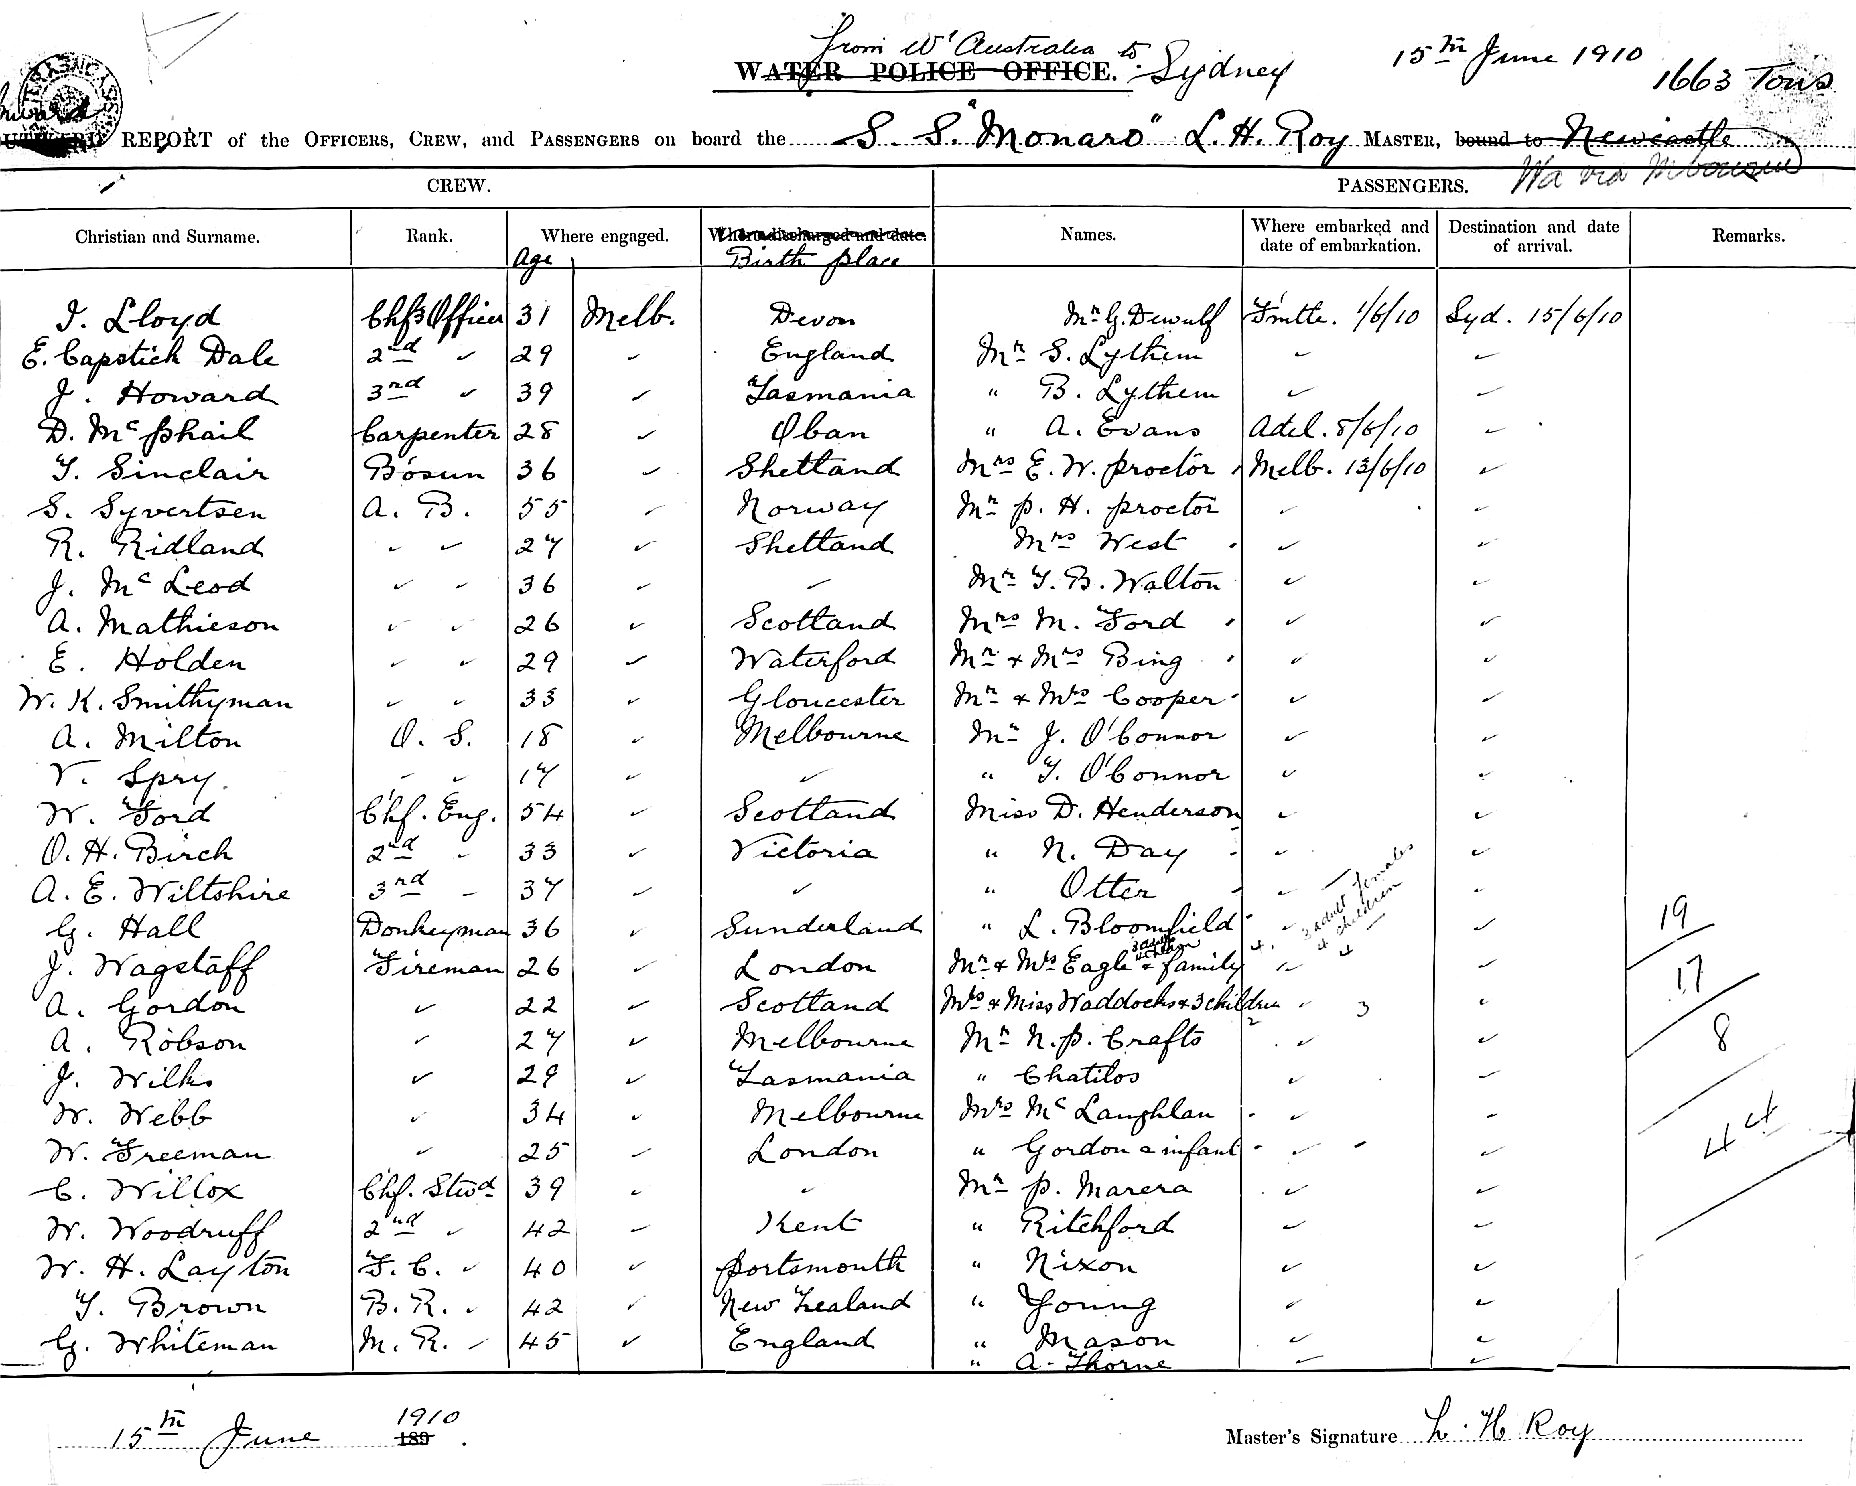 from W' Australia to
WATER POLICE OFFICE. Sydney
15th June 1910
1663 Tons
REPORT of the OFFICERS, CREW, and PASSENGERS on board the S. S. "Monaro" L. H. Roy MASTER, bound to Newcastle
Wa via
CREW. PASSENGERS.
Christian and Surname. Rank. Where engaged. Where discharged and date. Names. Where embarked and date of embarkation. Destination and date of arrival. Remarks.
Age Birth place
I. Lloyd Chf Officer 31 Melb. Devon Mr G. Dewulf F'mtle. 1/6/10 Syd. 15/6/10
E. Capstick Dale 2nd " 29 " England Mr S. Lythem " "
J. Howard 3rd " 39 " Tasmania " B. Lythem " "
D. McPhail Carpenter 28 " Oban " A. Evans Adel. 8/6/10 "
T. Sinclair Bosun 36 " Shetland Mrs E. W. Proctor Melb. 13/6/10 "
S. Syvertsen A. B. 55 " Norway Mr P. H. Proctor " "
R. Ridland " " 27 " Shetland Mrs West " "
J. McLeod " " 36 " " Mr T. B. Walton " "
A. Mathieson " " 26 " Scotland Mrs M. Ford " "
E. Holden " " 29 " Waterford Mr & Mrs Bing " "
W. K. Smithyman " " 33 " Gloucester Mr & Mrs Cooper " "
A. Milton O. S. 18 " Melbourne Mr J. O'Connor " "
V. Spry " " 17 " " " T. O'Connor " "
W. Ford Chf. Eng. 54 " Scotland Miss D. Henderson " "
O. H. Birch 2nd " 33 " Victoria " N. Day " "
A. E. Wiltshire 3rd " 37 " " " Otter " "
3 adult females
4 children
4
G. Hall Donkeyman 36 " Sunderland " L. Bloomfield " " 19
J. Wagstaff Fireman 26 " London Mr & Mrs Eagle & family 4 " "
A. Gordon " 22 " Scotland Mrs & Miss Waddocks & 3 children " 3 " 17
A. Robson " 27 " Melbourne Mr N. P. Crafts " " 8
J. Wilks " 29 " Tasmania " Chatilos " "
W. Webb " 34 " Melbourne Mrs McLaughlan " " 44
W. Freeman " 25 " London " Gordon & infant " "
C. Willox Chf. Stwd 39 " " Mr P. Marera " "
W. Woodruff 2nd " 42 " Kent " Ritchford " "
W. H. Layton F. C. " 40 " Portsmouth " Nixon " "
T. Brown B. R. " 42 " New Zealand " Young " "
G. Whiteman M. R. " 45 " England " Mason " "
" A. Thorne " "
15th June 1910
189
Master's Signature L. H Roy